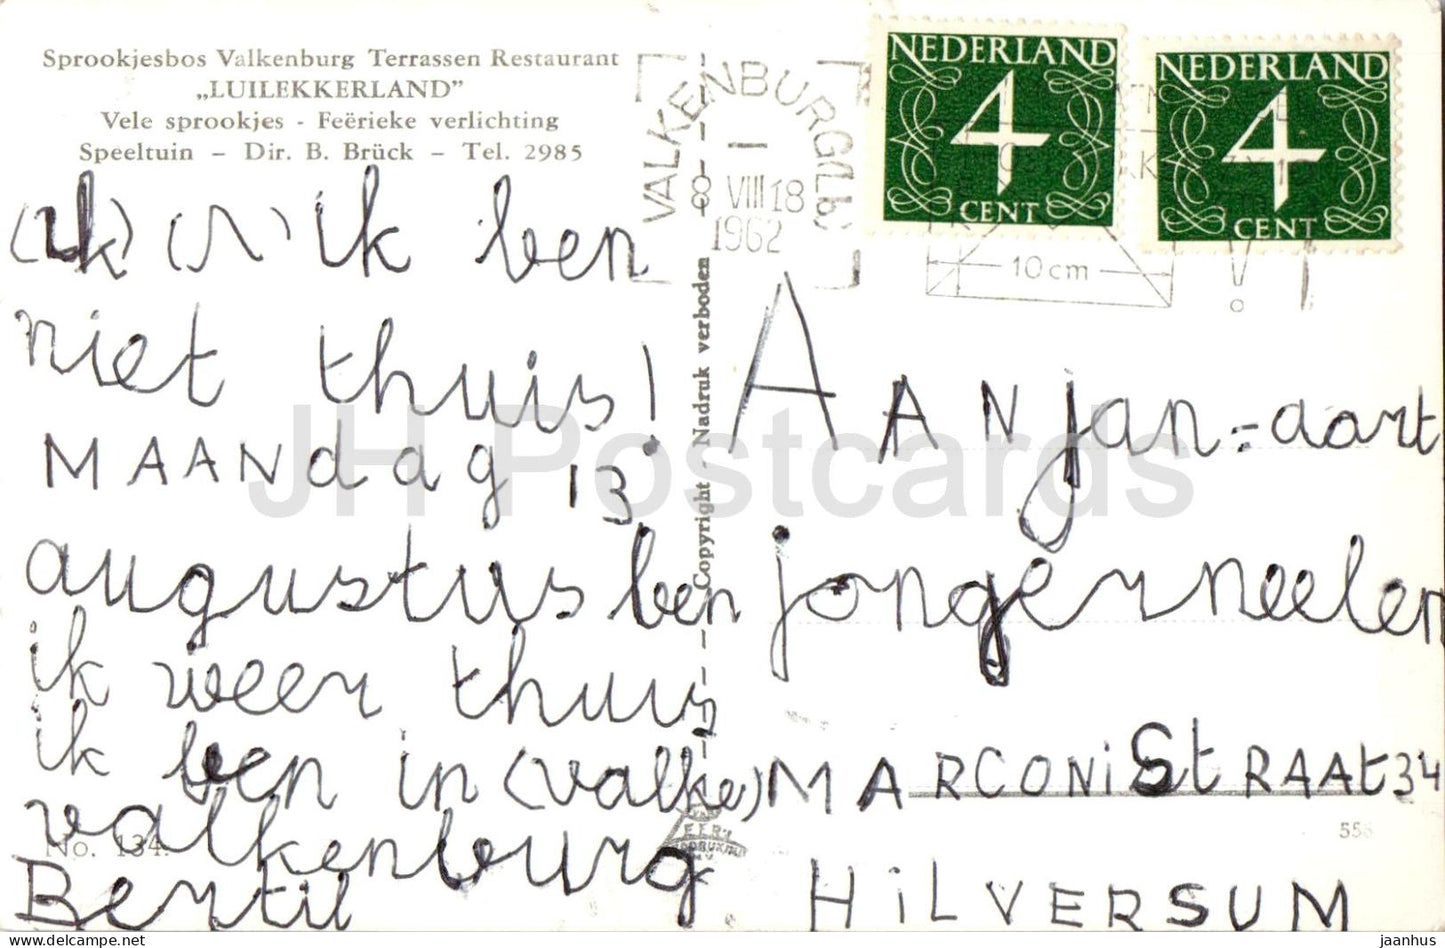 Sprookjesbos Valkenburg Terrassen Restaurant
„LUILEKKERLAND”
Vele sprookjes - Feërieke verlichting
Speeltuin – Dir. B. Brück – Tel. 2985
VALKENBURG(Lb)
8 VIII 18
1962
NEDERLAND
4
CENT
NEDERLAND
4
CENT
10 cm
(ik) ik ben
niet thuis!
MAANdag 13
augustus ben
ik weer thuis
ik ben in (valke)
valkenburg
Bertil
Copyright - Nadruk verboden
AAN jan=aart
jongerneelen
MARCONiStRAAt 34
HiLVERSUM
No. 134.
JH Postcards
jaanhus / delcampe.net